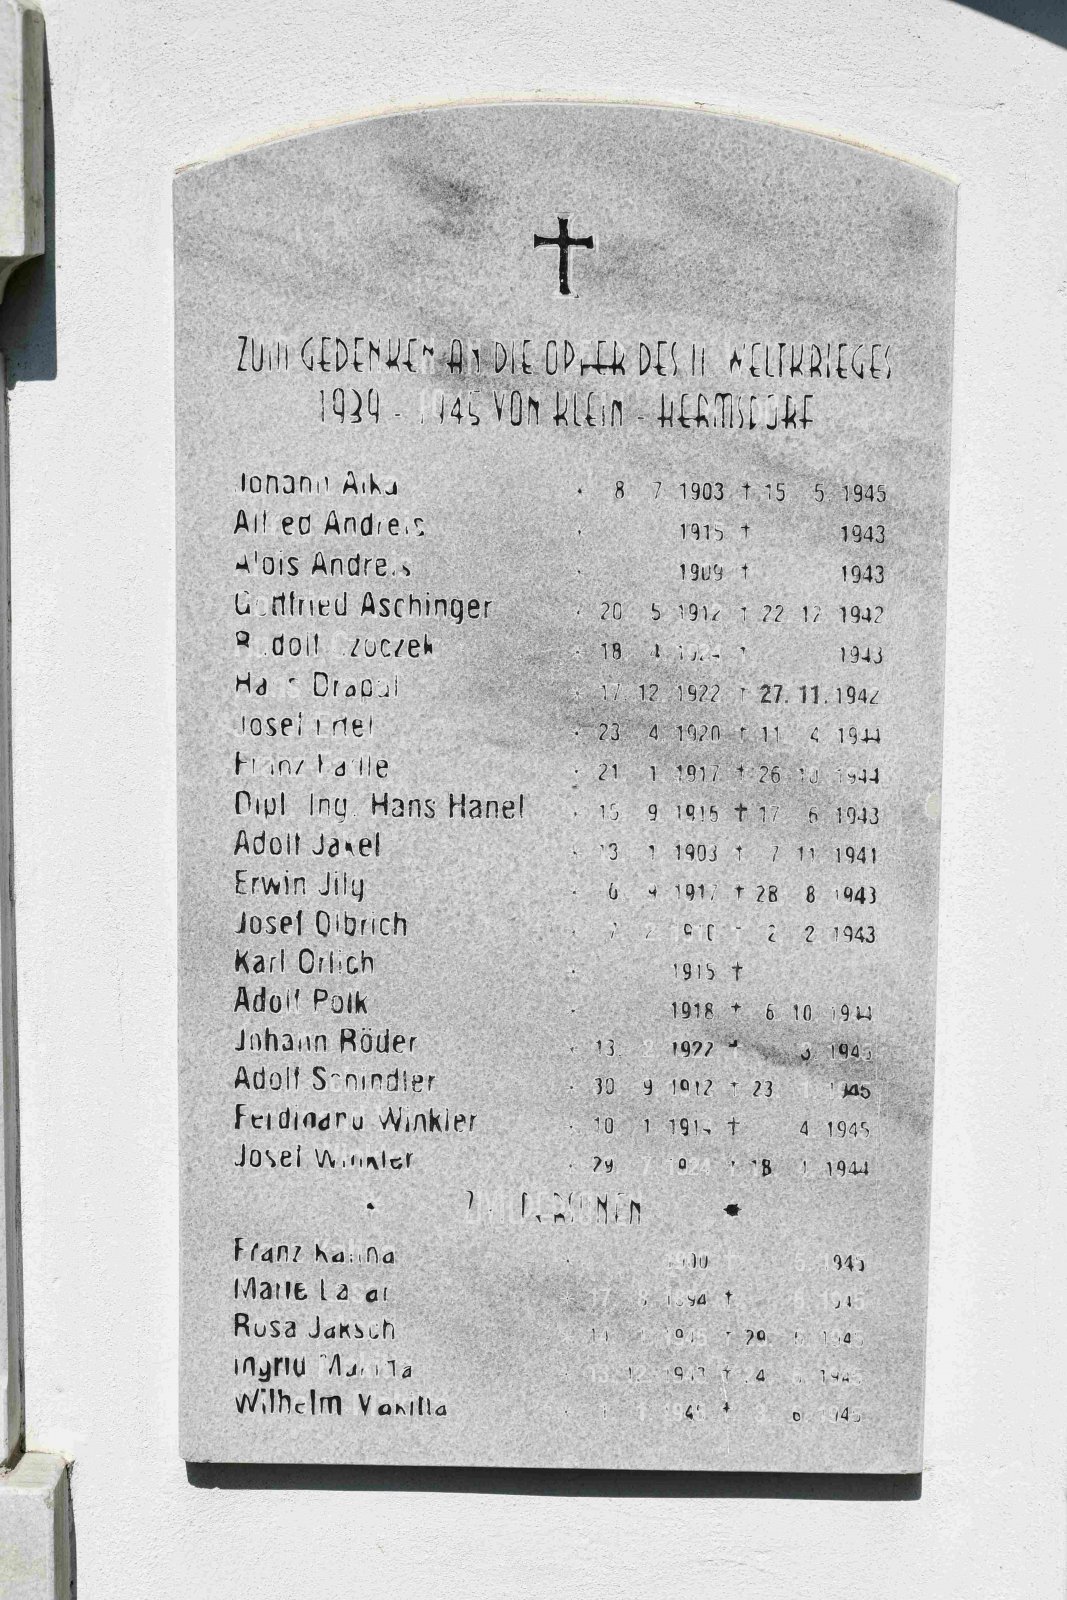 ZUM GEDENKEN AN DIE OPFER DES II. WELTKRIEGES
1939 - 1945 VON KLEIN - HERMSDORF
Johann 8. 7. 1903 † 15. 5. 1945
Alfred Andreis 1915 † 1943
Alois Andreis 1909 † 1943
Gottfried Aschinger 20. 5. 1912 † 22. 12. 1942
Rudolf 18. 4. 1924 † 1943
Hans Drabal 17. 12. 1922 † 27. 11. 1942
Josef Ertel 23. 4. 1920 † 11. 4. 1944
Franz 21. 1. 1917 † 26. 10. 1944
Dipl. Ing. Hans Hanel 15. 9. 1915 † 17. 6. 1943
Adolf Jakel 13. 1. 1903 † 7. 11. 1941
Erwin Jily 6. 9. 1917 † 28. 8. 1943
Josef Olbrich 7. 2. † 2. 2. 1943
Karl Orlich 1915 †
Adolf Polk 1918 † 6. 10. 1944
Johann Röder 13. 2. 1922 † 3. 1945
Adolf Schindler 30. 9. 1912 † 23. 1. 1945
Ferdinand Winkler 10. 1. † 4. 1945
Josef Winkler 29. 7. 1924 † 18. 1. 1944
ZIVILPERSONEN
Franz Kalina 1900 5. 1945
Marie 17. 1894 † 1945
Rosa Jaksch † 29. 5. 1945
Ingrid 13. 12. † 1945
Wilhelm Vanilla 1. 1. † 6. 1945